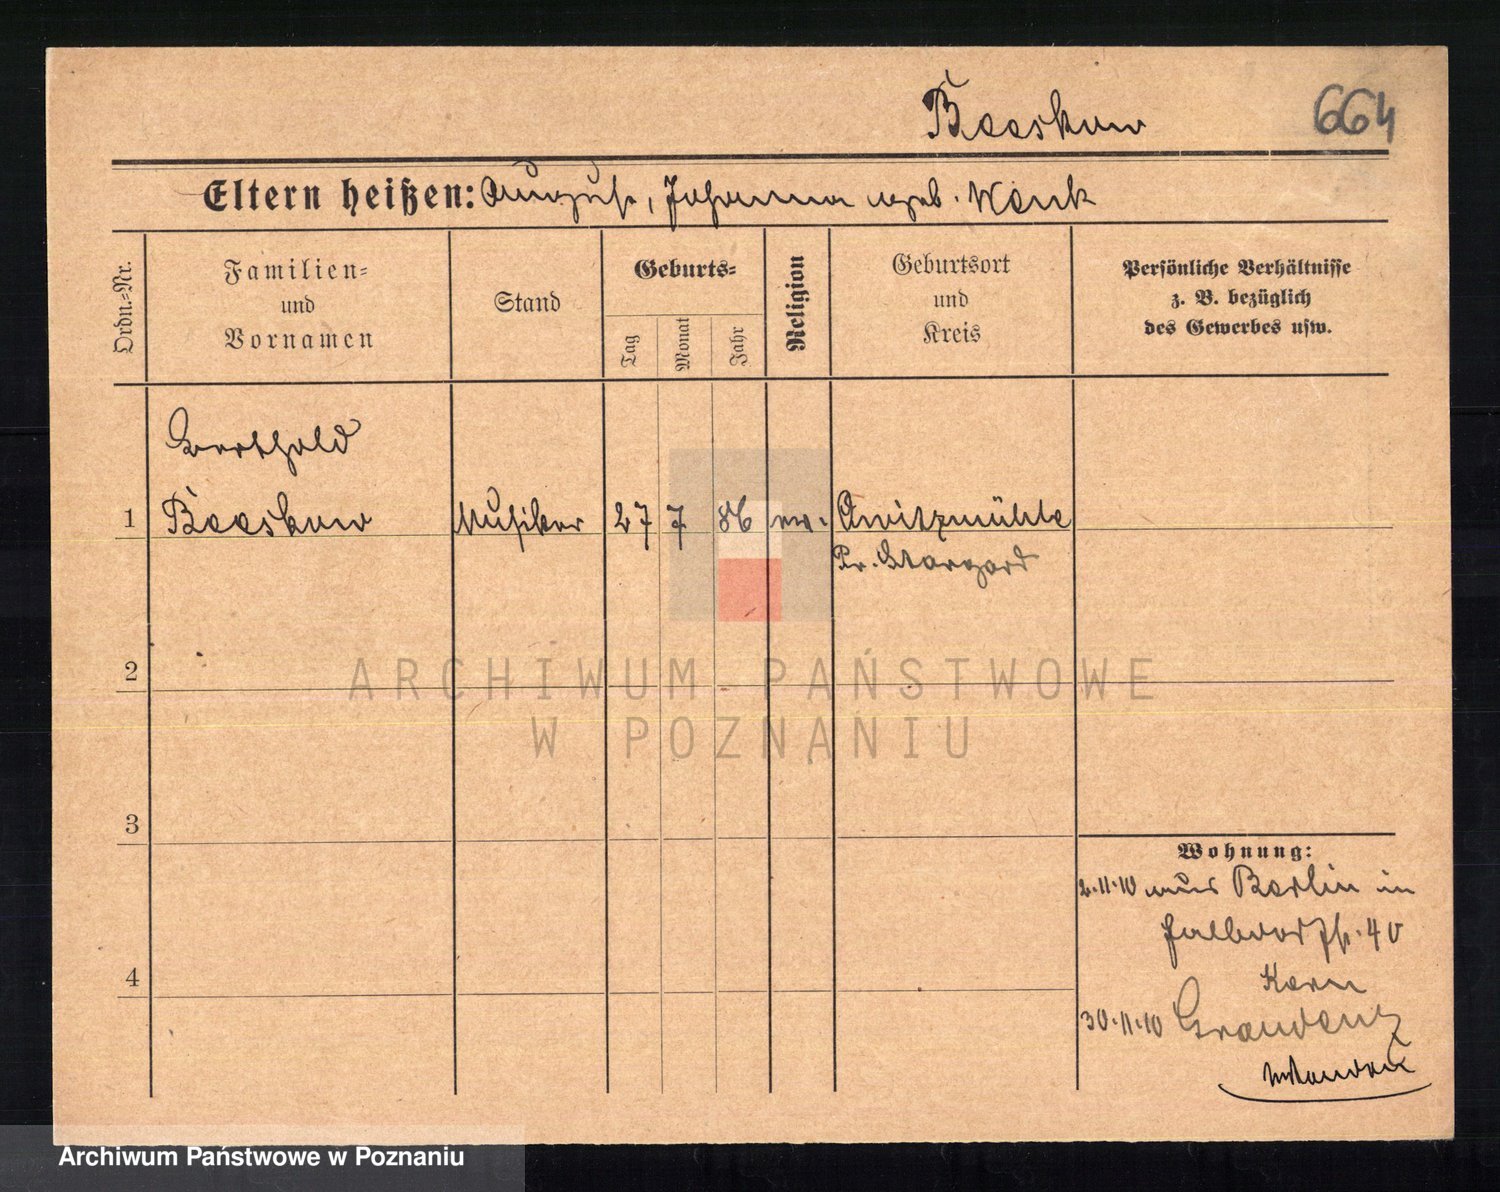 Beeskow
664
Eltern heißen: August, Johanna geb. Wenk
Ordn.=Nr.
Familien=
und
Vornamen
Stand
Geburts=
Tag
Monat
Jahr
Religion
Geburtsort
und
Kreis
Persönliche Verhältnisse
z. B. bezüglich
des Gewerbes usw.
Berthold
1 Beeskow Musiker 27 7 86 ev.
Pr. Stargard
2
ARCHIWUM PAŃSTWOWE
W POZNANIU
3
4
Wohnung:
2.11.10 aus Berlin in
Halbdorfstr. 40
Kern
30.11.10 Graudenz
Archiwum Państwowe w Poznaniu